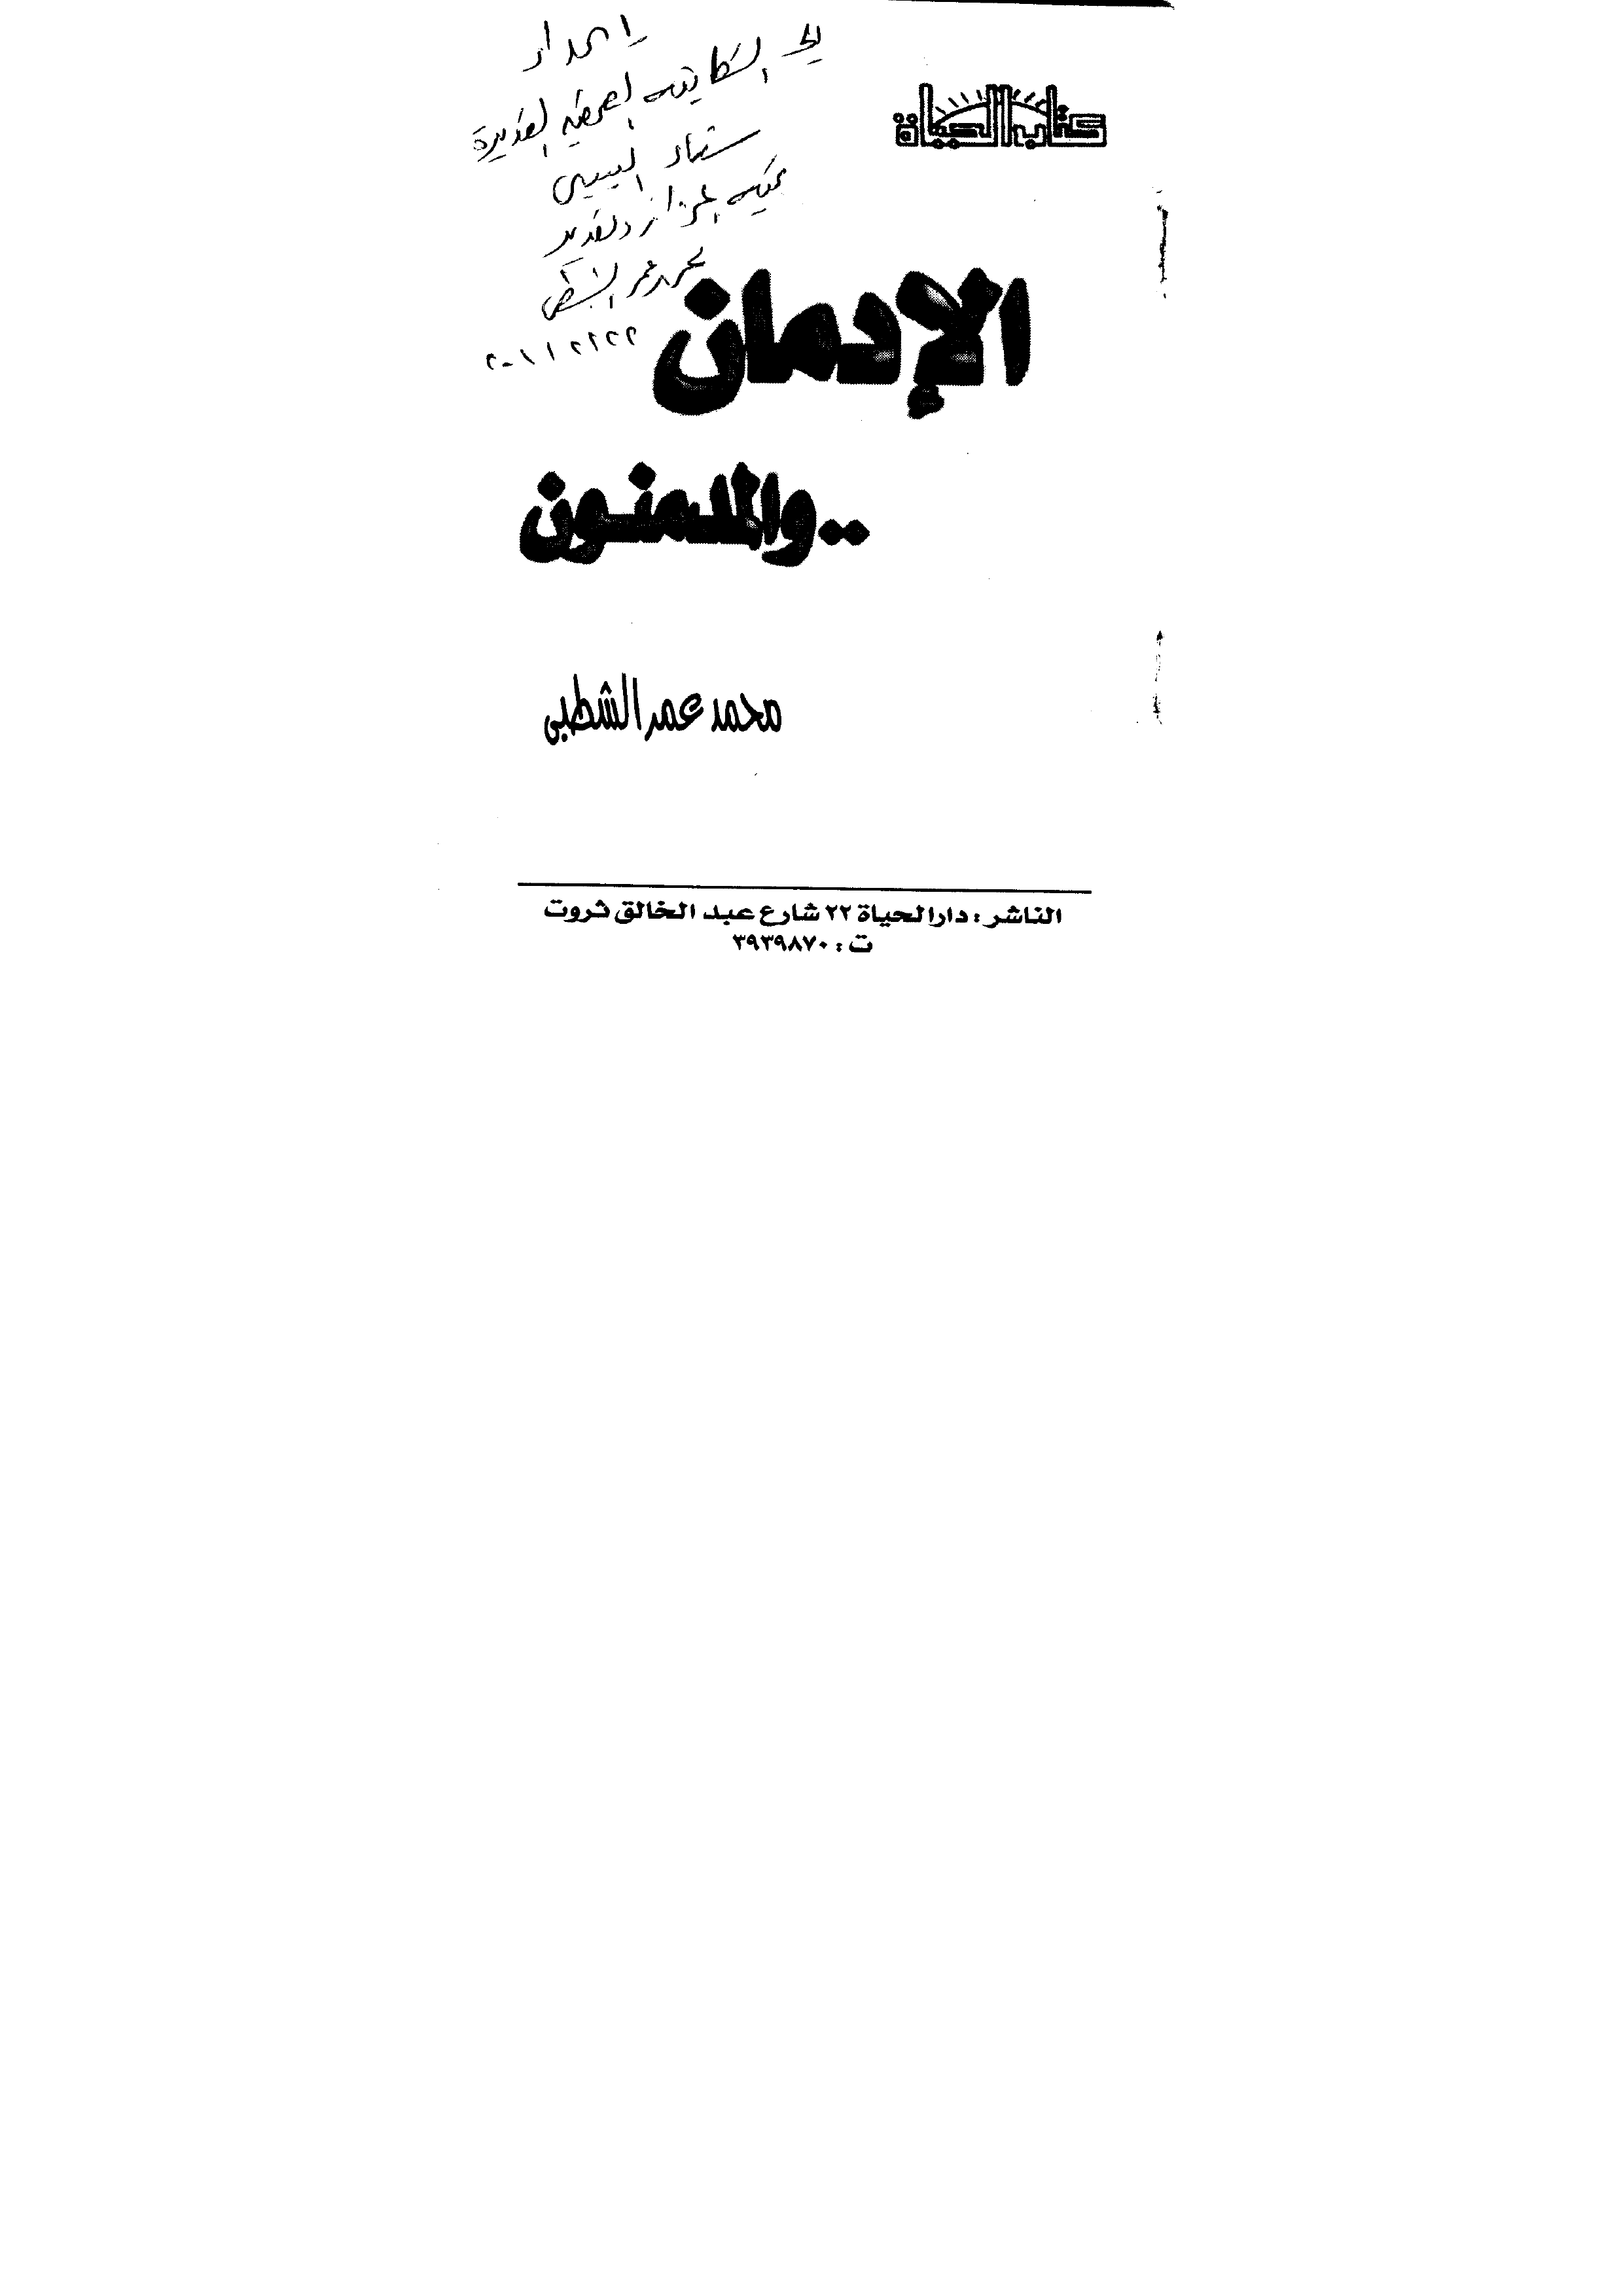 إهداء
إلى الكاتبة الصحفية القديرة
سناء البيسى
تحية إعزاز وتقدير
محمد عمر الشطبى
كتاب الحياة
الإدمان
.. والمدمنون
محمد عمر الشطبى
الناشر : دار الحياة ٢٢ شارع عبد الخالق ثروت
ت : ٣٩٣٩٨٧٠